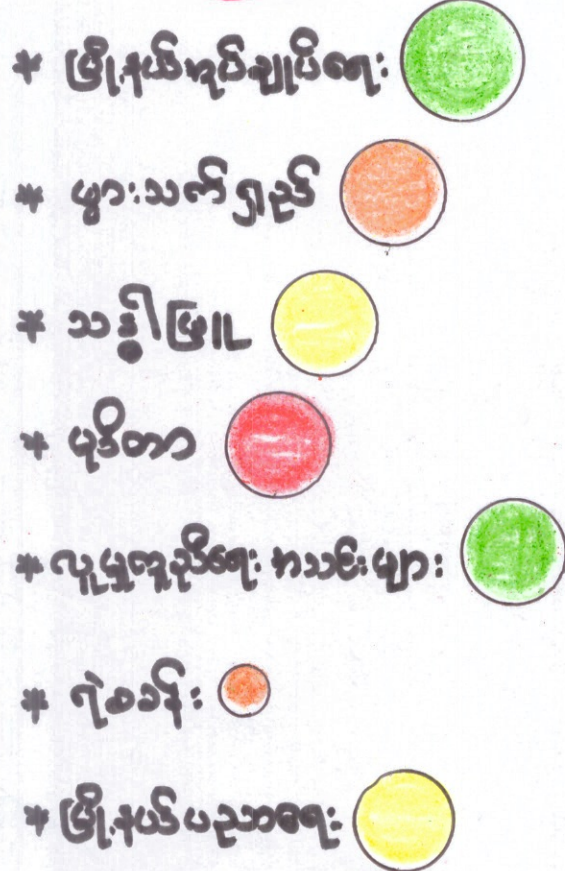 * မြို့နယ်အုပ်ချုပ်ရေး
* မွားသက်ရှည်
* သဒ္ဓါဖြူ
* မုဒိတာ
* လူမှုကူညီရေး အသင်းများ
* ရဲစခန်း
* မြို့နယ်ပညာရေး